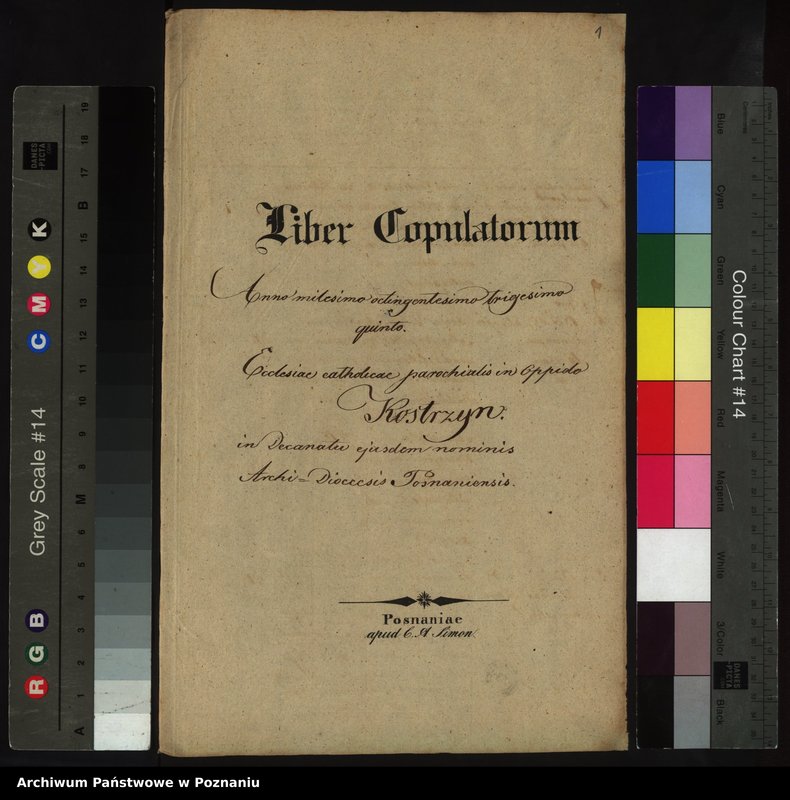 1
Liber Copulatorum
Anno milesimo octingentesimo trigesimo
quinto.
Ecclesiae catholicae parochialis in Oppido
Kostrzyn.
in Decanatu ejusdem nominis
Archi=Dioecesis Posnaniensis.
Posnaniae
apud C. A Simon.
Grey Scale #14
R G B
C M Y K
A 1 2 3 4 5 6 M 8 9 10 11 12 13 14 15 B 17 18 19
DANES
-PICTA
.COM
Colour Chart #14
Blue
Cyan
Green
Yellow
Red
Magenta
White
3/Color
Black
Centimetres
DANES
-PICTA
.COM
Archiwum Państwowe w Poznaniu